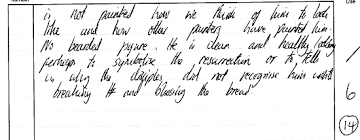 is not painted how we think of him to look
like and how other painters have painted him.
No bearded figure. He is clean and healthy looking
perhaps to symbolise the resurrection or to tell
us why the disciples did not recognise him until
breaking it and blessing the bread
/
6
14